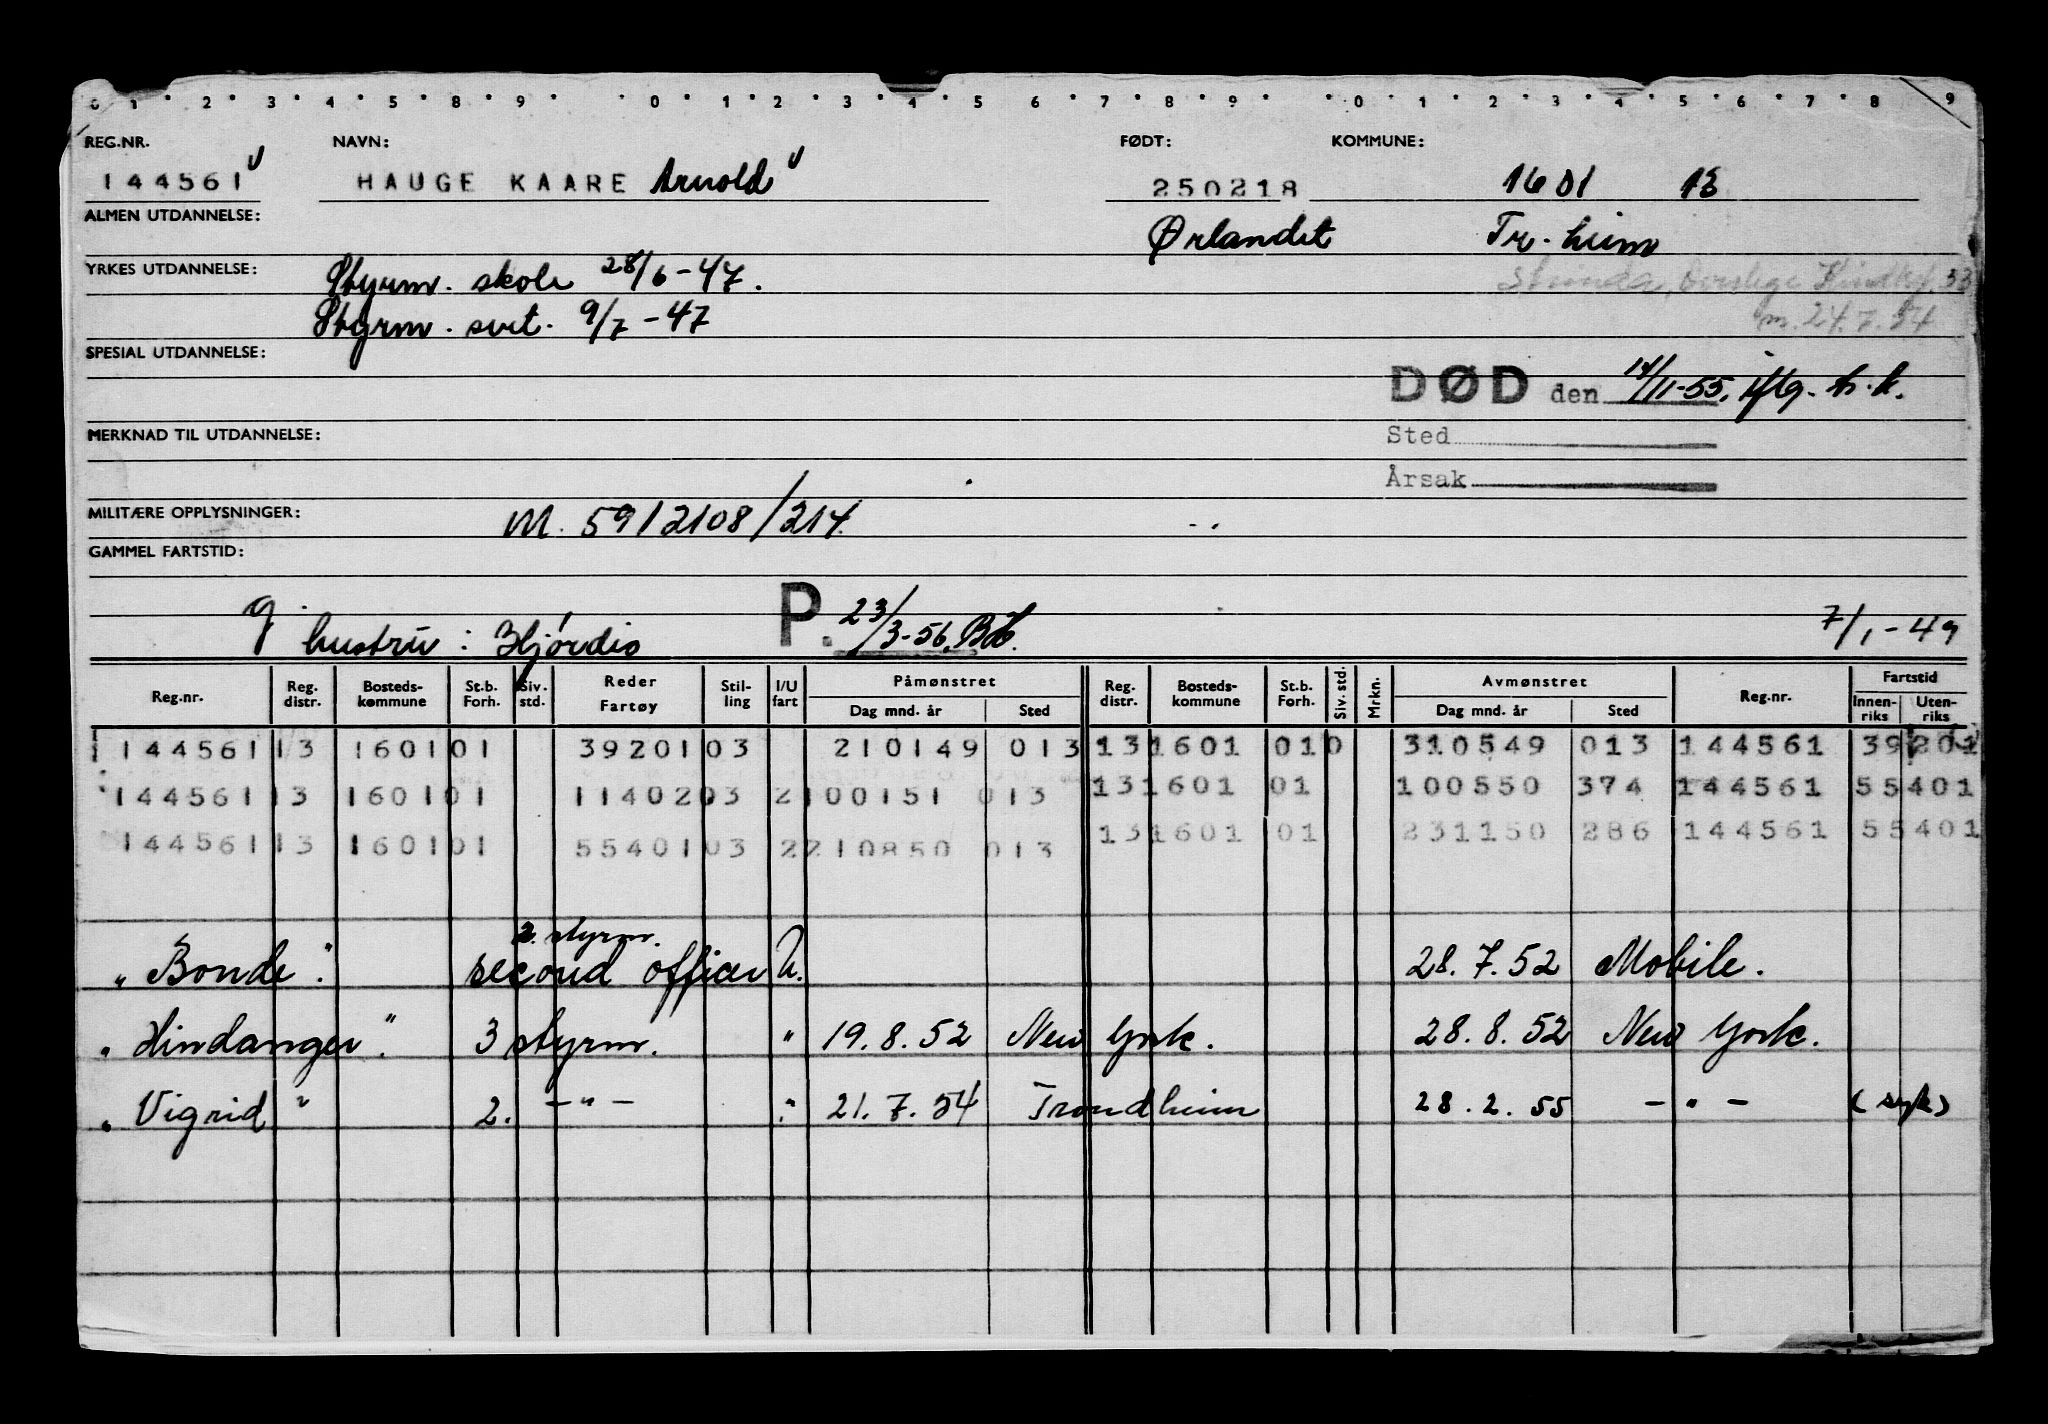 0 1 2 3 4 5 8 9 0 1 2 3 4 5 6 7 8 9 0 1 2 3 4 5 6 7 8 9
REG.NR. NAVN: FØDT: KOMMUNE:
144561 HAUGE KAARE Arnold 250218 1601 13
ALMEN UTDANNELSE: Ørlandet Tr.heim
YRKES UTDANNELSE: Styrm. skole 28/6-47.
Styrm. sert. 9/7-47 m. 24.7.54
SPESIAL UTDANNELSE:
DØD den 14/11-55. iflg. h.k.
MERKNAD TIL UTDANNELSE: Sted
Årsak
MILITÆRE OPPLYSNINGER: M. 5912108/214.
GAMMEL FARTSTID:
g. hustru: Hjørdis P. 23/3-56. 7/1-49
Reg.nr. Reg. distr. Bosteds-kommune St.b. Forh. Siv. std. Reder Fartøy Stil-ling I/U fart Påmønstret Dag mnd. år Sted Reg. distr. Bosteds-kommune St.b. Forh. Siv. std. Mrkn. Avmønstret Dag mnd. år Sted Reg.nr. Fartstid Innen-riks Uten-riks
144561 13 1601 01 39201 03 210149 013 13 1601 01 0 310549 013 144561 39201
144561 13 1601 01 11402 03 2 100151 013 13 1601 01 100550 374 144561 55401
144561 13 1601 01 55401 03 2 210850 013 13 1601 01 231150 286 144561 55401
2. styrm.
"Bonde". second officer U. 28.7.52 Mobile.
"Hindanger". 3 styrm. " 19.8.52 New York. 28.8.52 New York.
"Vigrid" 2. -"- " 21.7.54 Trondheim 28.2.55 -"- (syk)